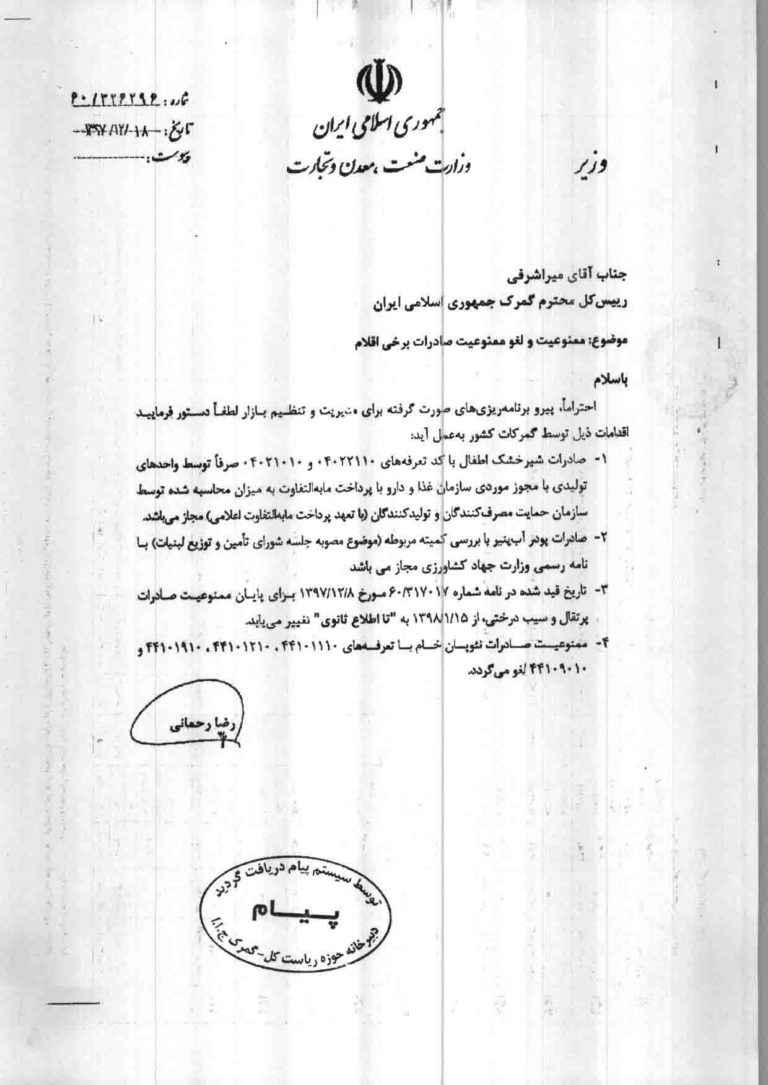 جمهوری اسلامی ایران
وزارت صنعت، معدن و تجارت
وزیر
شماره: ۶۰/۳۲۶۲۹۶
تاریخ: ۱۳۹۷/۱۲/۱۸
پیوست:
جناب آقای میراشرفی
رییس‌کل محترم گمرک جمهوری اسلامی ایران
موضوع: ممنوعیت و لغو ممنوعیت صادرات برخی اقلام
باسلام
احتراماً، پیرو برنامه‌ریزی‌های صورت گرفته برای مدیریت و تنظیم بازار لطفاً دستور فرمایید
اقدامات ذیل توسط گمرکات کشور به‌عمل آید:
۱- صادرات شیرخشک اطفال با کد تعرفه‌های ۰۴۰۲۲۱۱۰ و ۰۴۰۲۱۰۱۰ صرفاً توسط واحدهای
تولیدی با مجوز موردی سازمان غذا و دارو با پرداخت مابه‌التفاوت به میزان محاسبه شده توسط
سازمان حمایت مصرف‌کنندگان و تولیدکنندگان (با تعهد پرداخت مابه‌التفاوت اعلامی) مجاز می‌باشد.
۲- صادرات پودر آب‌پنیر با بررسی کمیته مربوطه (موضوع مصوبه جلسه شورای تأمین و توزیع لبنیات) با
نامه رسمی وزارت جهاد کشاورزی مجاز می باشد
۳- تاریخ قید شده در نامه شماره ۶۰/۳۱۷۰۱۷ مورخ ۱۳۹۷/۱۲/۸ برای پایان ممنوعیت صادرات
پرتقال و سیب درختی، از ۱۳۹۸/۱/۱۵ به "تا اطلاع ثانوی" تغییر می‌یابد.
۴- ممنوعیت صادرات نئوپان خام با تعرفه‌های ۴۴۱۰۱۱۱۰، ۴۴۱۰۱۲۱۰، ۴۴۱۰۱۹۱۰ و
۴۴۱۰۹۰۱۰ لغو می‌گردد.
رضا رحمانی
توسط سیستم پیام دریافت گردید
پیام
دبیرخانه حوزه ریاست کل-گمرک ج.ا.ا